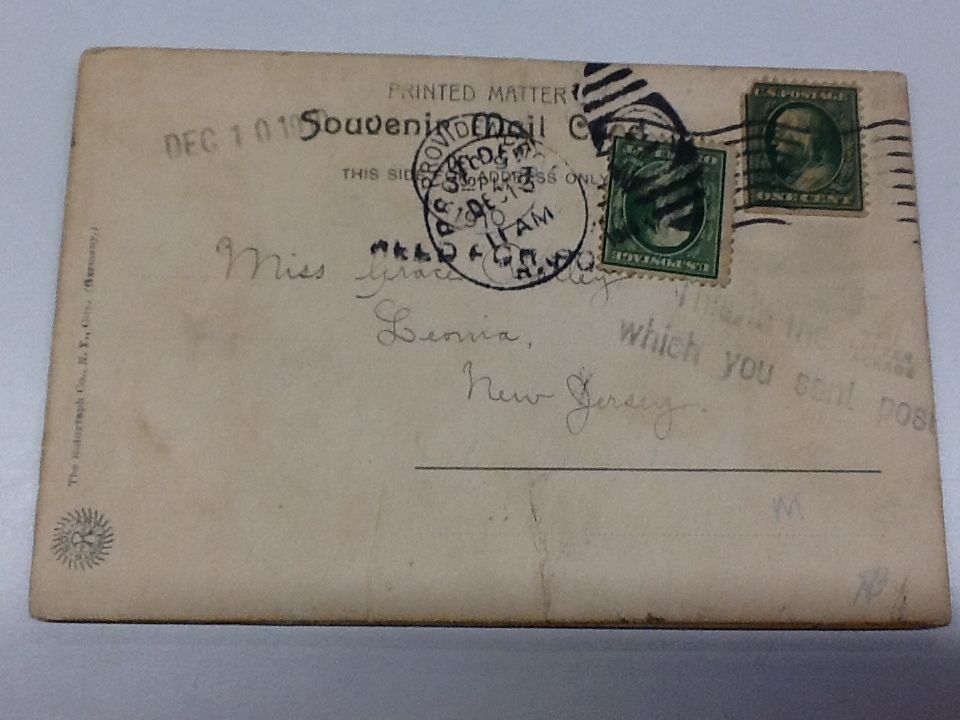 PRINTED MATTER
DEC 10 19
Souvenir Mail Card
THIS SIDE FOR ADDRESS ONLY
PROVIDENCE
DEC 13
11 AM
1910
R.I.
U.S. POSTAGE
ONE CENT
U.S. POSTAGE
Miss Grace
Leonia,
New Jersey.
This is the
which you sent post
The Rotograph Co., N. Y., City. (Germany.)
M